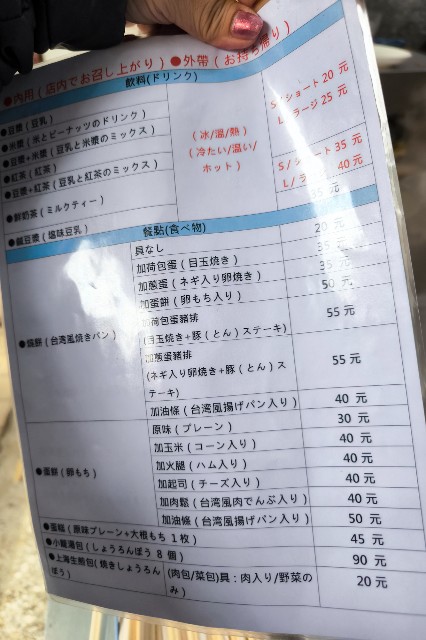 ●內用 ( 店内でお召し上がり ) ●外帶 ( お持ち帰り )
飲料(ドリンク)
●豆漿 ( 豆乳 )
●米漿 ( 米とピーナッツのドリンク )
●豆漿+米漿 ( 豆乳と米漿のミックス )
●紅茶 ( 紅茶 )
●豆漿+紅茶 ( 豆乳と紅茶のミックス )
●鮮奶茶 ( ミルクティー )
●鹹豆漿 ( 塩味豆乳 )
( 冰/溫/熱 )
( 冷たい/温い/
ホット )
S / ショート 20 元
L / ラージ 25 元
S / ショート 35 元
L / ラージ 40 元
35 元
餐點(食べ物)
●燒餅 ( 台湾風焼きパン )
具なし 20 元
加荷包蛋 ( 目玉焼き ) 35 元
加蔥蛋 ( ネギ入り卵焼き ) 35 元
加蛋餅 ( 卵もち入り ) 50 元
加荷包蛋豬排
(目玉焼き+豚 ( とん ) ステーキ) 55 元
加蔥蛋豬排
(ネギ入り卵焼き+豚 ( とん ) ス
テーキ) 55 元
加油條 ( 台湾風揚げパン入り ) 40 元
●蛋餅 ( 卵もち )
原味 ( プレーン ) 30 元
加玉米 ( コーン入り ) 40 元
加火腿 ( ハム入り ) 40 元
加起司 ( チーズ入り ) 40 元
加肉鬆 ( 台湾風肉でんぶ入り ) 40 元
加油條 ( 台湾風揚げパン入り ) 50 元
●蛋糕 ( 原味プレーン+大根もち 1 枚 ) 45 元
●小籠湯包 ( しょうろんぽう 8 個 ) 90 元
●上海生煎包( 焼きしょうろん
ぽう ) (肉包/菜包) 具 : 肉入り/野菜の
み ) 20 元